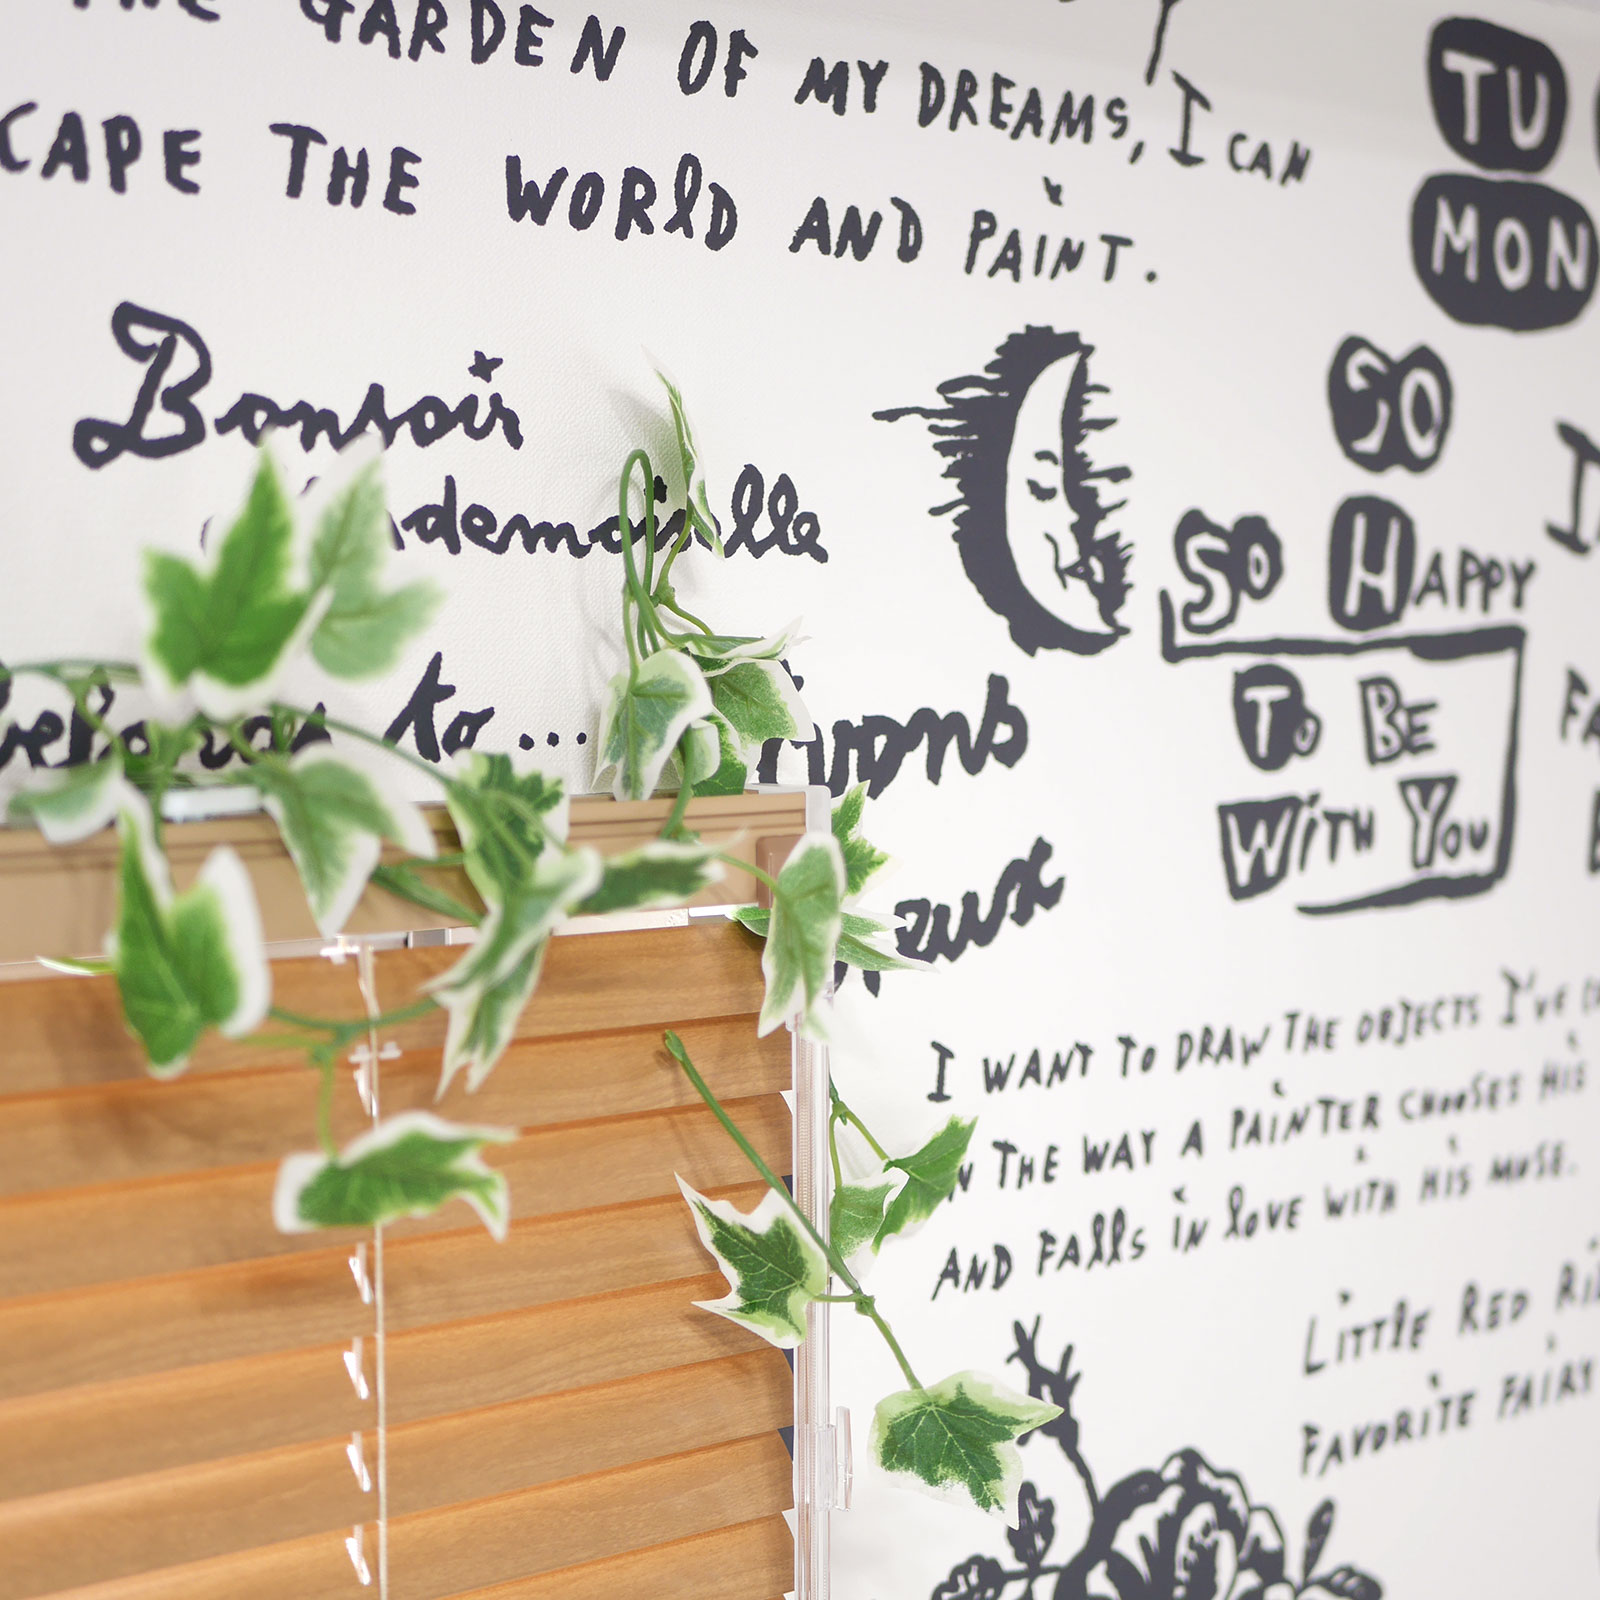 GARDEN OF MY DREAMS, I CAN
CAPE THE WORLD AND PAINT.
TU
MON
Bonsoir
demoiselle
to ...
SO
SO HAPPY
TO BE
WITH YOU
I WANT TO DRAW THE OBJECTS I'VE
IN THE WAY A PAINTER CHOOSES HIS
AND FALLS IN LOVE WITH HIS MUSE.
LITTLE RED
FAVORITE FAIRY